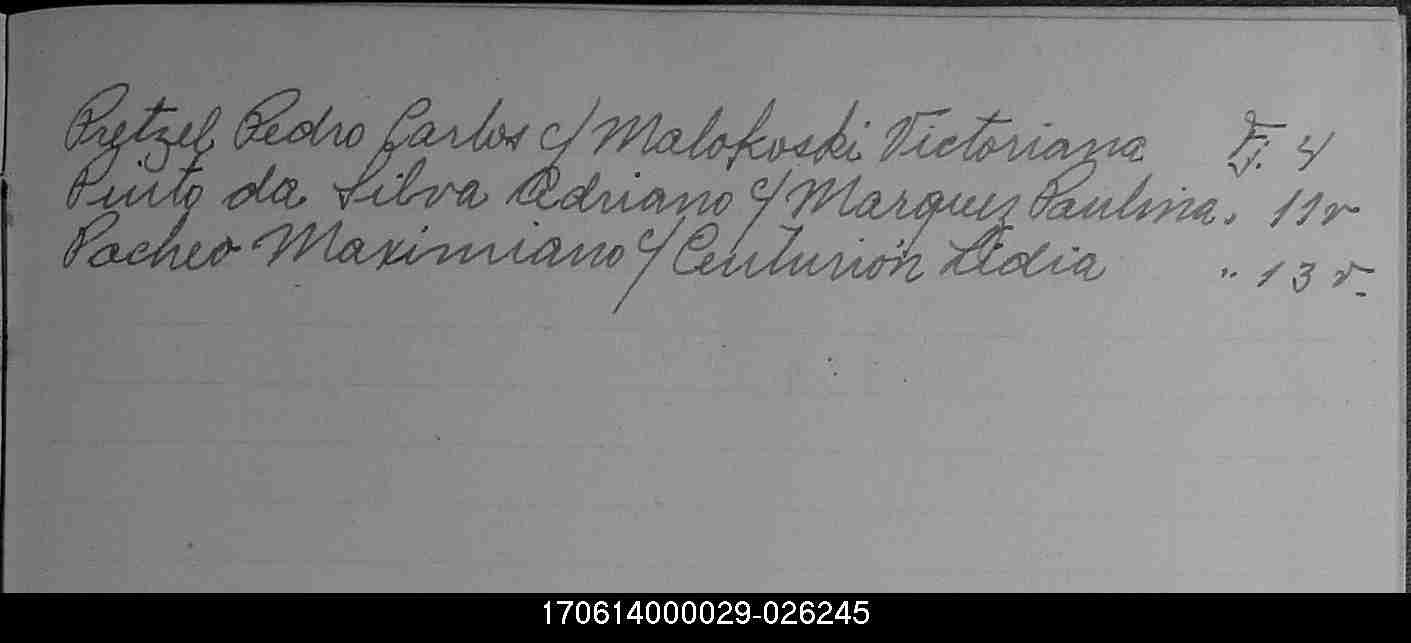 Pretzel Pedro Carlos c/ Malokoski Victoriana F. 4
Pinto da Silva Adriano c/ Marquez Paulina. 11 v
Pacheo Maximiano c/ Centurión Lidia " 13 v.
170614000029-026245